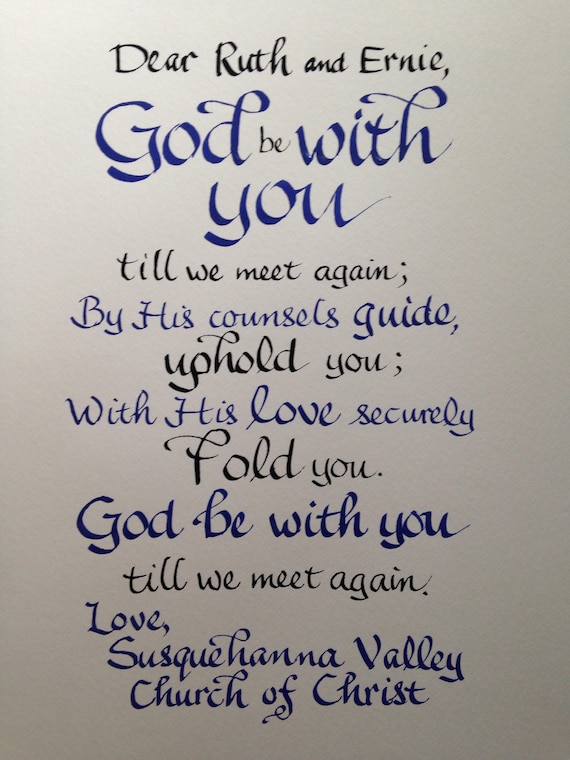 Dear Ruth and Ernie,
God be with
you
till we meet again;
By His counsels guide,
uphold you;
With His love securely
Fold you.
God be with you
till we meet again.
Love,
Susquehanna Valley
Church of Christ